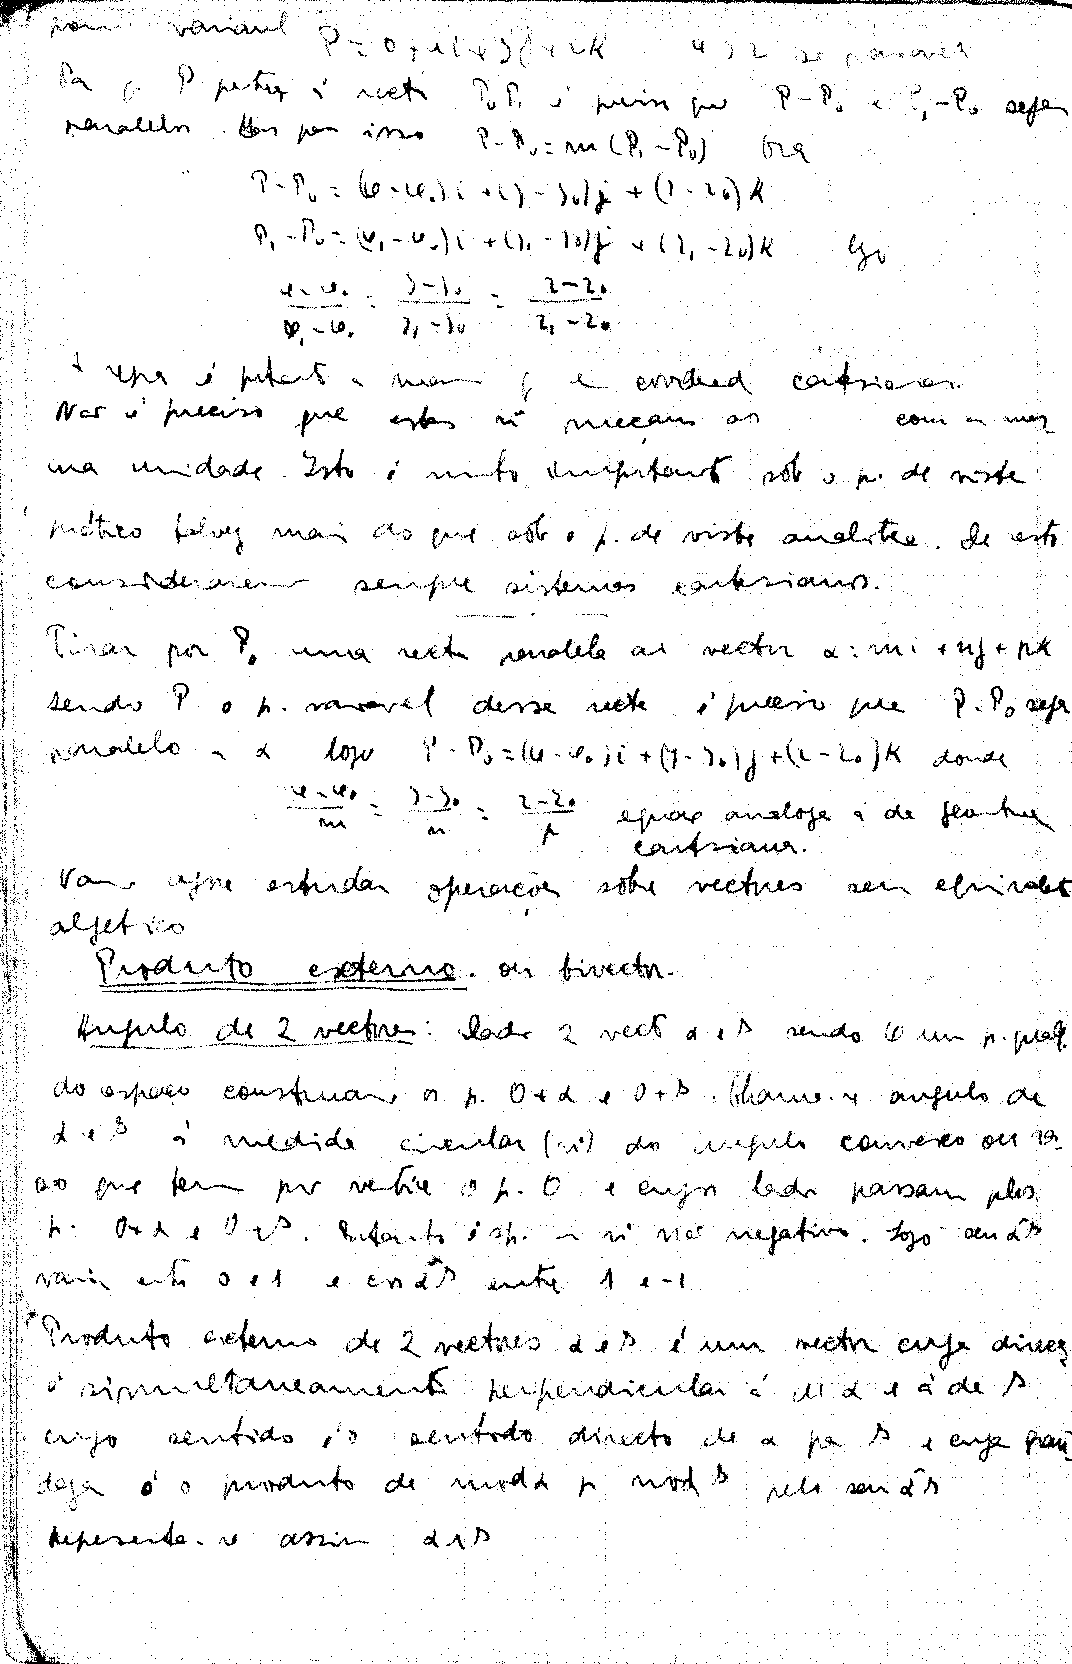 ponto variavel P = O + xi + yj + zk x y z se
Pa q P pertença á recta P₀P₁ é preciso que P-P₀ e P₁-P₀ sejam
paralelos. Mas para isso P-P₀ = m(P₁-P₀) Ora
P-P₀ = (x-x₀)i + (y-y₀)j + (z-z₀)k
P₁-P₀ = (x₁-x₀)i + (y₁-y₀)j + (z₁-z₀)k logo
(x-x₀)/(x₁-x₀) = (y-y₀)/(y₁-y₀) = (z-z₀)/(z₁-z₀)
é q e coorden cartesianas.
Não é preciso que estes se meçam os com a mes
ma unidade. Isto é muito importante sob o p. de vista
prático talvez mais do que sob o p. de vista analitico. De resto
consideraremos sempre sistemas cartesianos.
Tirar por P₀ uma recta paralela ao vector α = mi + nj + pk
sendo P o p. variavel dessa recta é preciso que P-P₀ seja
paralelo a α logo P-P₀ = (x-x₀)i + (y-y₀)j + (z-z₀)k donde
(x-x₀)/m = (y-y₀)/n = (z-z₀)/p equação analoga á da geometria
cartesiana.
Vamos agora estudar operações sobre vectores sem equivalente
algebrico
Produto externo. ou bivector.
Angulo de 2 vectores: Dados 2 vect α e β sendo O um p. qualq.
do espaço construamos os p. O+α e O+β. Chama-se angulo de
α e β á medida circular (rd) do angulo convexo ou ra
so que tem por vertice o p. O e cujos lados passam pelos
p. O+α e O+β. Portanto é sp. um nº não negativo. Logo sen αβ
varia entre 0 e 1 e cos αβ entre 1 e -1
Produto externo de 2 vectores α e β é um vector cuja direcç
é simultaneamente perpendicular á de α e á de β
cujo sentido é o sentido directo de α para β e cuja gran
deza é o produto de mod α p mod β pelo sen αβ
Representa-se assim α∧β